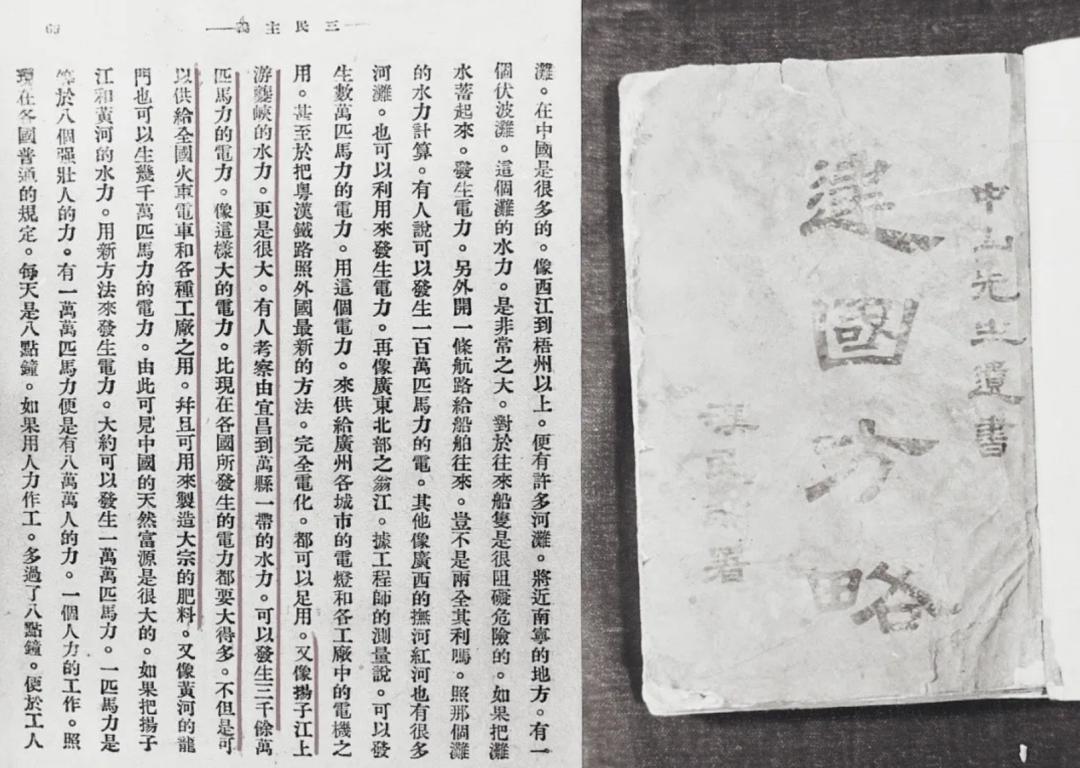 三民主義
69
灘。在中國是很多的。像西江到梧州以上。便有許多河灘。將近南寧的地方。有一
個伏波灘。這個灘的水力。是非常之大。對於往來船隻是很阻礙危險的。如果把灘
水蓄起來。發生電力。另外開一條航路給船舶往來。豈不是兩全其利嗎。照那個灘
的水力計算。有人說可以發生一百萬匹馬力的電。其他像廣西的撫河紅河也有很多
河灘。也可以利用來發生電力。再像廣東北部之翁江。據工程師的測量說。可以發
生數萬匹馬力的電力。用這個電力。來供給廣州各城市的電燈和各工廠中的電機之
用。甚至於把粵漢鐵路照外國最新的方法。完全電化。都可以足用。又像揚子江上
游夔峽的水力。更是很大。有人考察由宜昌到萬縣一帶的水力。可以發生三千餘萬
匹馬力的電力。像這樣大的電力。比現在各國所發生的電力都要大得多。不但是可
以供給全國火車電車和各種工廠之用。幷且可用來製造大宗的肥料。又像黃河的龍
門也可以生幾千萬匹馬力的電力。由此可見中國的天然富源是很大的。如果把揚子
江和黃河的水力。用新方法來發生電力。大約可以發生一萬萬匹馬力。一匹馬力是
等於八個强壯人的力。有一萬萬匹馬力便是有八萬萬人的力。一個人力的工作。照
現在各國普通的規定。每天是八點鐘。如果用人力作工。多過了八點鐘。便於工人
中山先生遺書
建國方略
著